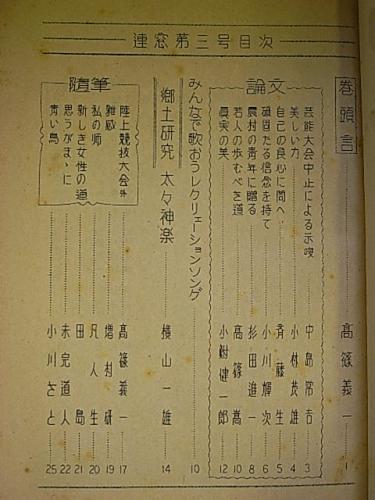 連窓第三号目次
巻頭言 高篠義一 1
論文
芸能大会中止による示唆 中島常吉 3
美しい力 小林茂雄 4
自己の良心に問へ 斉藤生 5
確固たる信念を持て 小川輝次 6
農村の青年に贈る 杉田進一 8
若人の歩むべき道 高篠高 10
真実の美 小樹健一郎 12
みんなで歌おうレクリェーションソング 10
郷土研究 太々神楽 横山一雄 14
随筆
陸上競技大会外 高篠義一 17
雑感 増村研 19
私の師 凡人生 20
新しき女性の道 田島 21
思うがまゝに 未完道人 22
青い鳥 小川さと 25